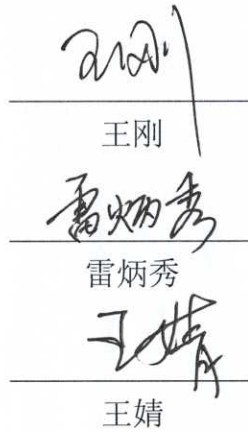 王刚
王刚
雷炳秀
雷炳秀
王婧
王婧